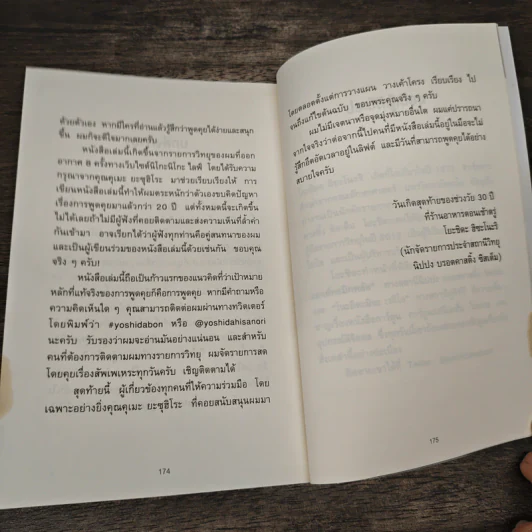 ด้วยตัวเอง หากมีใครที่อ่านแล้วรู้สึกว่าพูดคุยได้ง่ายและสนุก
ขึ้น ผมก็จะดีใจมากเลยครับ
หนังสือเล่มนี้เกิดขึ้นจากรายการวิทยุของผมที่ออก
อากาศ 8 ครั้งทางเว็บไซต์นิโกะนิโกะ ไลฟ์ โดยได้รับความ
กรุณาจากคุณคุเมะ ยะซุฮิโระ มาช่วยเรียบเรียงให้ การ
เขียนหนังสือเล่มนี้ทำให้ผมตระหนักว่าตัวเองขบคิดปัญหา
เรื่องการพูดคุยมาแล้วกว่า 20 ปี แต่ทั้งหมดนี้จะเกิดขึ้น
ไม่ได้เลยถ้าไม่มีผู้ฟังที่คอยติดตามและส่งความเห็นที่ล้ำค่า
กันเข้ามา อาจเรียกได้ว่าผู้ฟังทุกท่านคือคู่สนทนาของผม
และเป็นผู้เขียนร่วมของหนังสือเล่มนี้ด้วยเช่นกัน ขอบคุณ
จริง ๆ ครับ!
หนังสือเล่มนี้ถือเป็นก้าวแรกของแนวคิดที่ว่าเป้าหมาย
หลักที่แท้จริงของการพูดคุยก็คือการพูดคุย หากมีคำถามหรือ
ความคิดเห็นใด ๆ คุณสามารถติดต่อผมผ่านทางทวิตเตอร์
โดยพิมพ์ว่า #yoshidabon หรือ @yoshidahisanori
นะครับ รับรองว่าผมจะอ่านมันอย่างแน่นอน และสำหรับ
คนที่ต้องการติดตามผมทางรายการวิทยุ ผมจัดรายการสด
โดยคุยเรื่องสัพเพเหระทุกวันครับ เชิญติดตามได้
สุดท้ายนี้ ผู้เกี่ยวข้องทุกคนที่ให้ความร่วมมือ โดย
เฉพาะอย่างยิ่งคุณคุเมะ ยะซุฮิโระ ที่คอยสนับสนุนผมมา
174
โดยตลอดตั้งแต่การวางแผน วางเค้าโครง เรียบเรียง ไป
จนถึงแก้ไขต้นฉบับ ขอบพระคุณจริง ๆ ครับ
ผมไม่มีเจตนาหรือจุดมุ่งหมายอื่นใด ผมแค่ปรารถนา
จากใจจริงว่าต่อจากนี้ไปคนที่มีหนังสือเล่มนี้อยู่ในมือจะไม่
รู้สึกอึดอัดเวลาอยู่ในลิฟต์ และมีวันที่สามารถพูดคุยได้อย่าง
สบายใจครับ
วันเกิดสุดท้ายของช่วงวัย 30 ปี
ที่ร้านอาหารตอนเช้าตรู่
โยะชิดะ ฮิซะโนะริ
(นักจัดรายการประจำสถานีวิทยุ
นิปปง บรอดคาสติ้ง ซิสเต็ม)
175